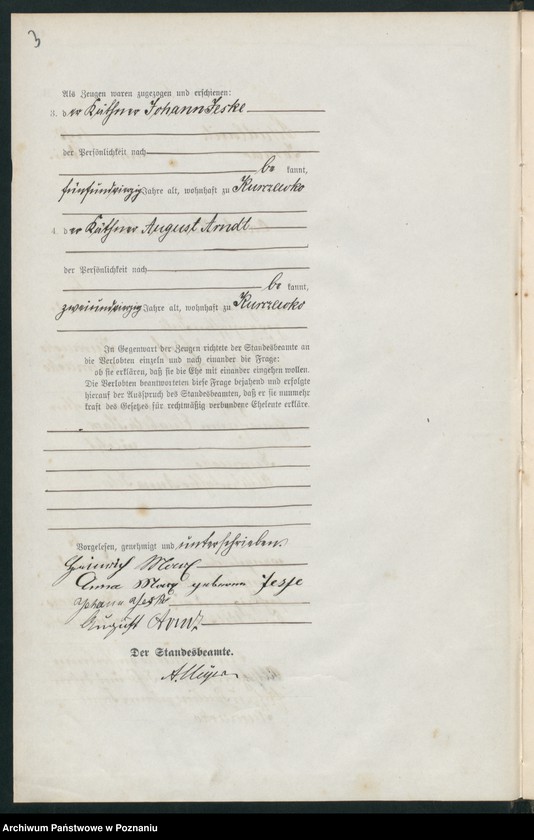 3
Als Zeugen waren zugezogen und erschienen:
3. der Käthner Johann Jeske
der Persönlichkeit nach
be kannt,
fünfundvierzig Jahre alt, wohnhaft zu Kurczewko
4. der Käthner August Arndt
der Persönlichkeit nach
be kannt,
zweiundvierzig Jahre alt, wohnhaft zu Kurczewko
In Gegenwart der Zeugen richtete der Standesbeamte an
die Verlobten einzeln und nach einander die Frage:
ob sie erklären, daß sie die Ehe mit einander eingehen wollen.
Die Verlobten beantworteten diese Frage bejahend und erfolgte
hierauf der Ausspruch des Standesbeamten, daß er sie nunmehr
kraft des Gesetzes für rechtmäßig verbundene Eheleute erkläre.
Vorgelesen, genehmigt und unterschrieben.
Heinrich Marx
Anna Marx geborene Jeske
Johann Jeske
August Arndt
Der Standesbeamte.
Archiwum Państwowe w Poznaniu